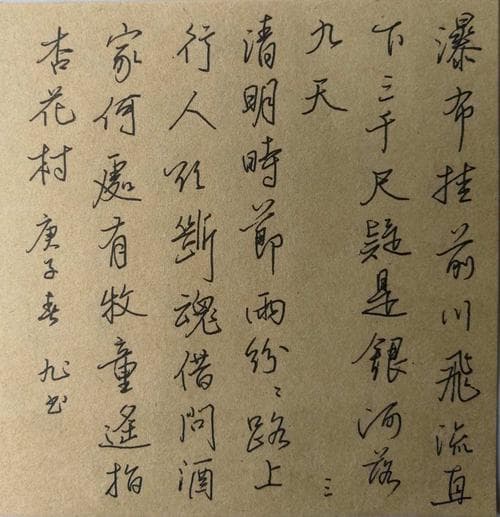 瀑布挂前川飛流直
下三千尺疑是銀河落
九天 三
清明時節雨紛〻路上
行人欲斷魂借問酒
家何處有牧童遙指
杏花村 庚子春 九书